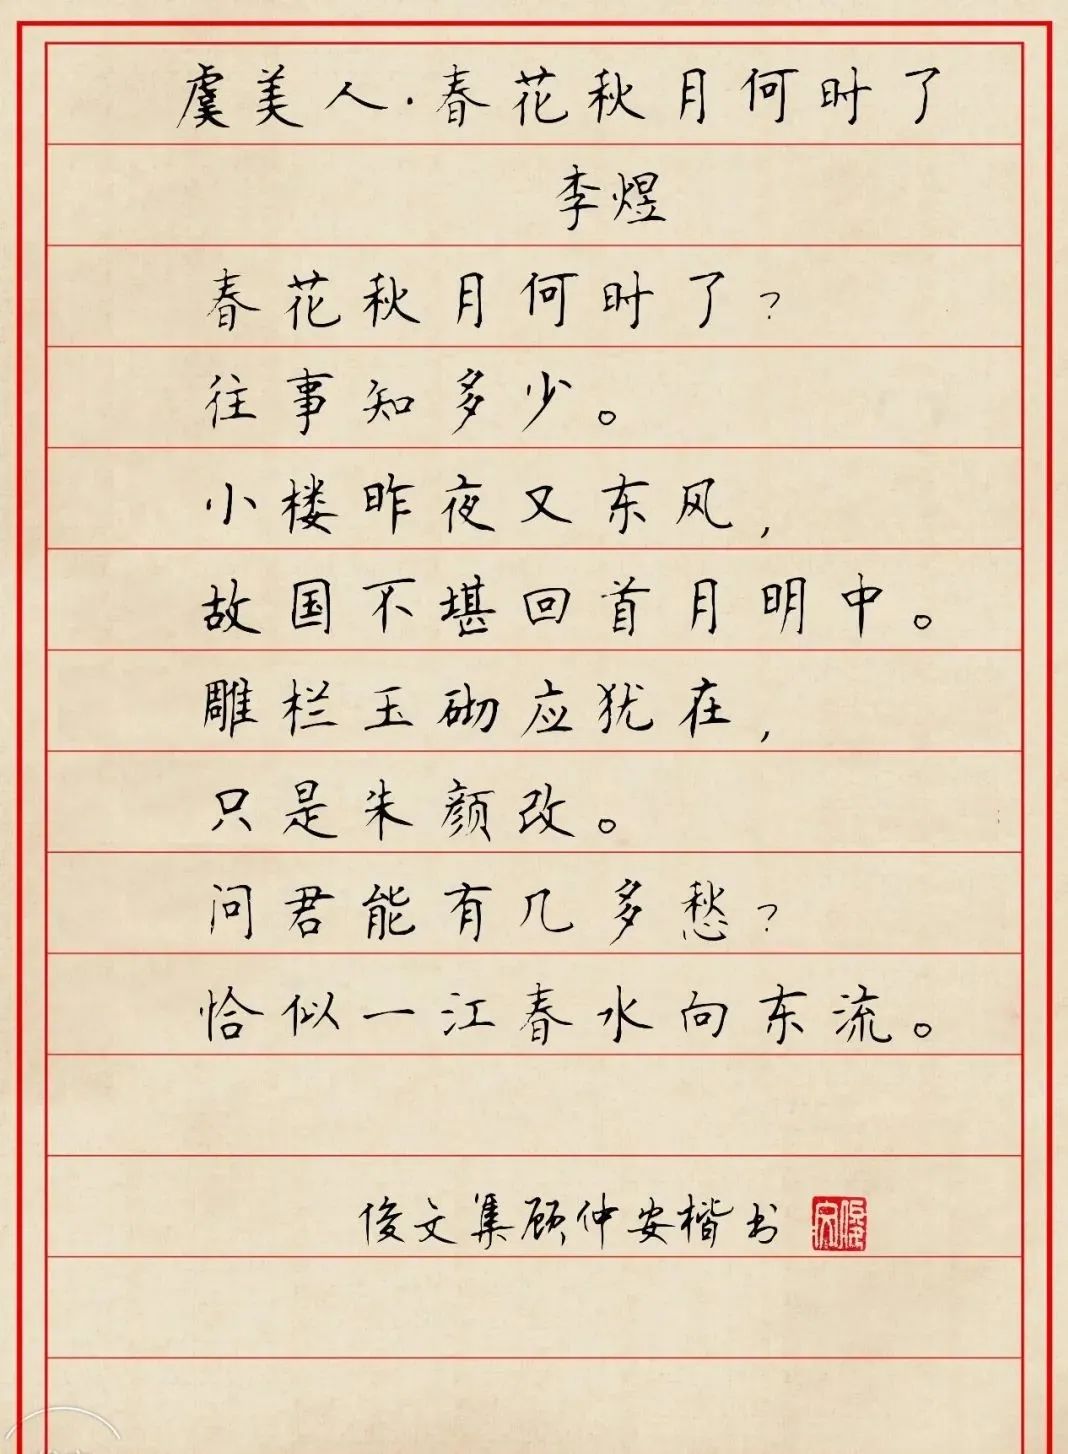 虞美人·春花秋月何时了
李煜
春花秋月何时了?
往事知多少。
小楼昨夜又东风,
故国不堪回首月明中。
雕栏玉砌应犹在,
只是朱颜改。
问君能有几多愁?
恰似一江春水向东流。
俊文集顾仲安楷书